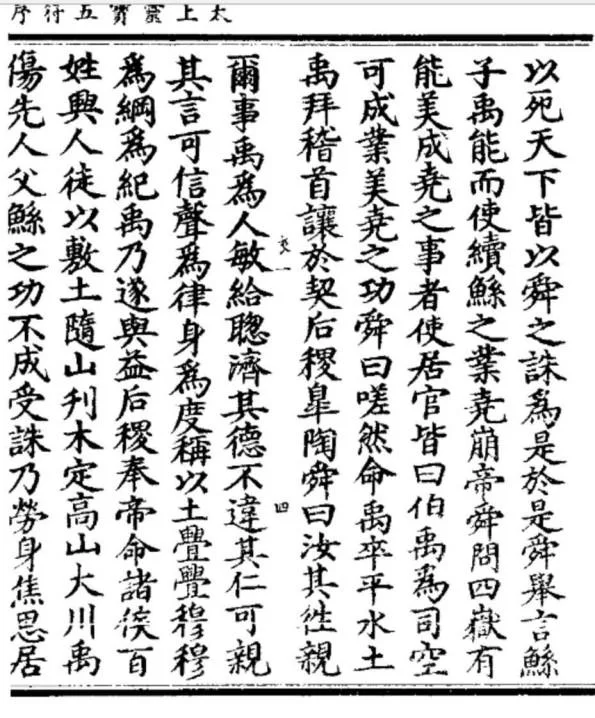 太上靈寶五符序
以死天下皆以舜之誅為是於是舜舉言鯀
子禹能而使續鯀之業堯崩帝舜問四嶽有
能美成堯之事者使居官皆曰伯禹為司空
可成業美堯之功舜曰嗟然命禹卒平水土
禹拜稽首讓於契后稷皐陶舜曰汝其徃親
四
爾事禹為人敏給聦濟其德不違其仁可親
其言可信聲為律身為度稱以土亹亹穆穆
為綱為紀禹乃遂與益后稷奉帝命諸侯百
姓興人徒以敷土隨山刋木定高山大川禹
傷先人父鯀之功不成受誅乃勞身焦思居